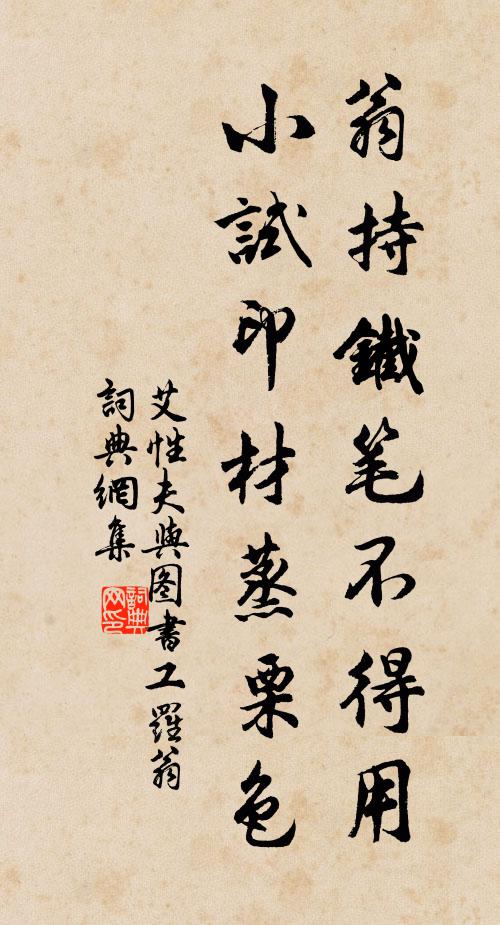 翁持鐵笔不得用
小試印材蒸栗色
艾性夫與图書工羅翁
詞典網集
詞典网印